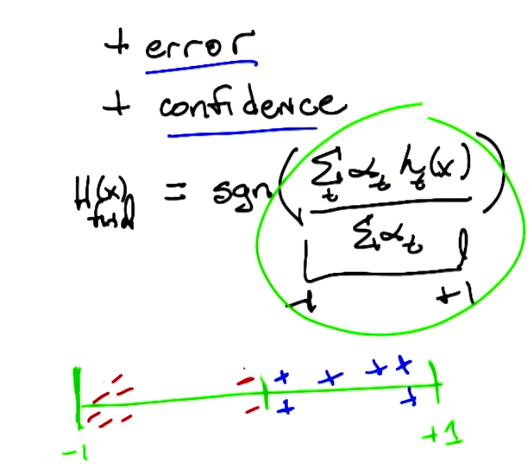 + error
+ confidence
H(x) final = sgn( Σ_t α_t h_t(x) / Σ_t α_t )
-1 +1
-1 +1